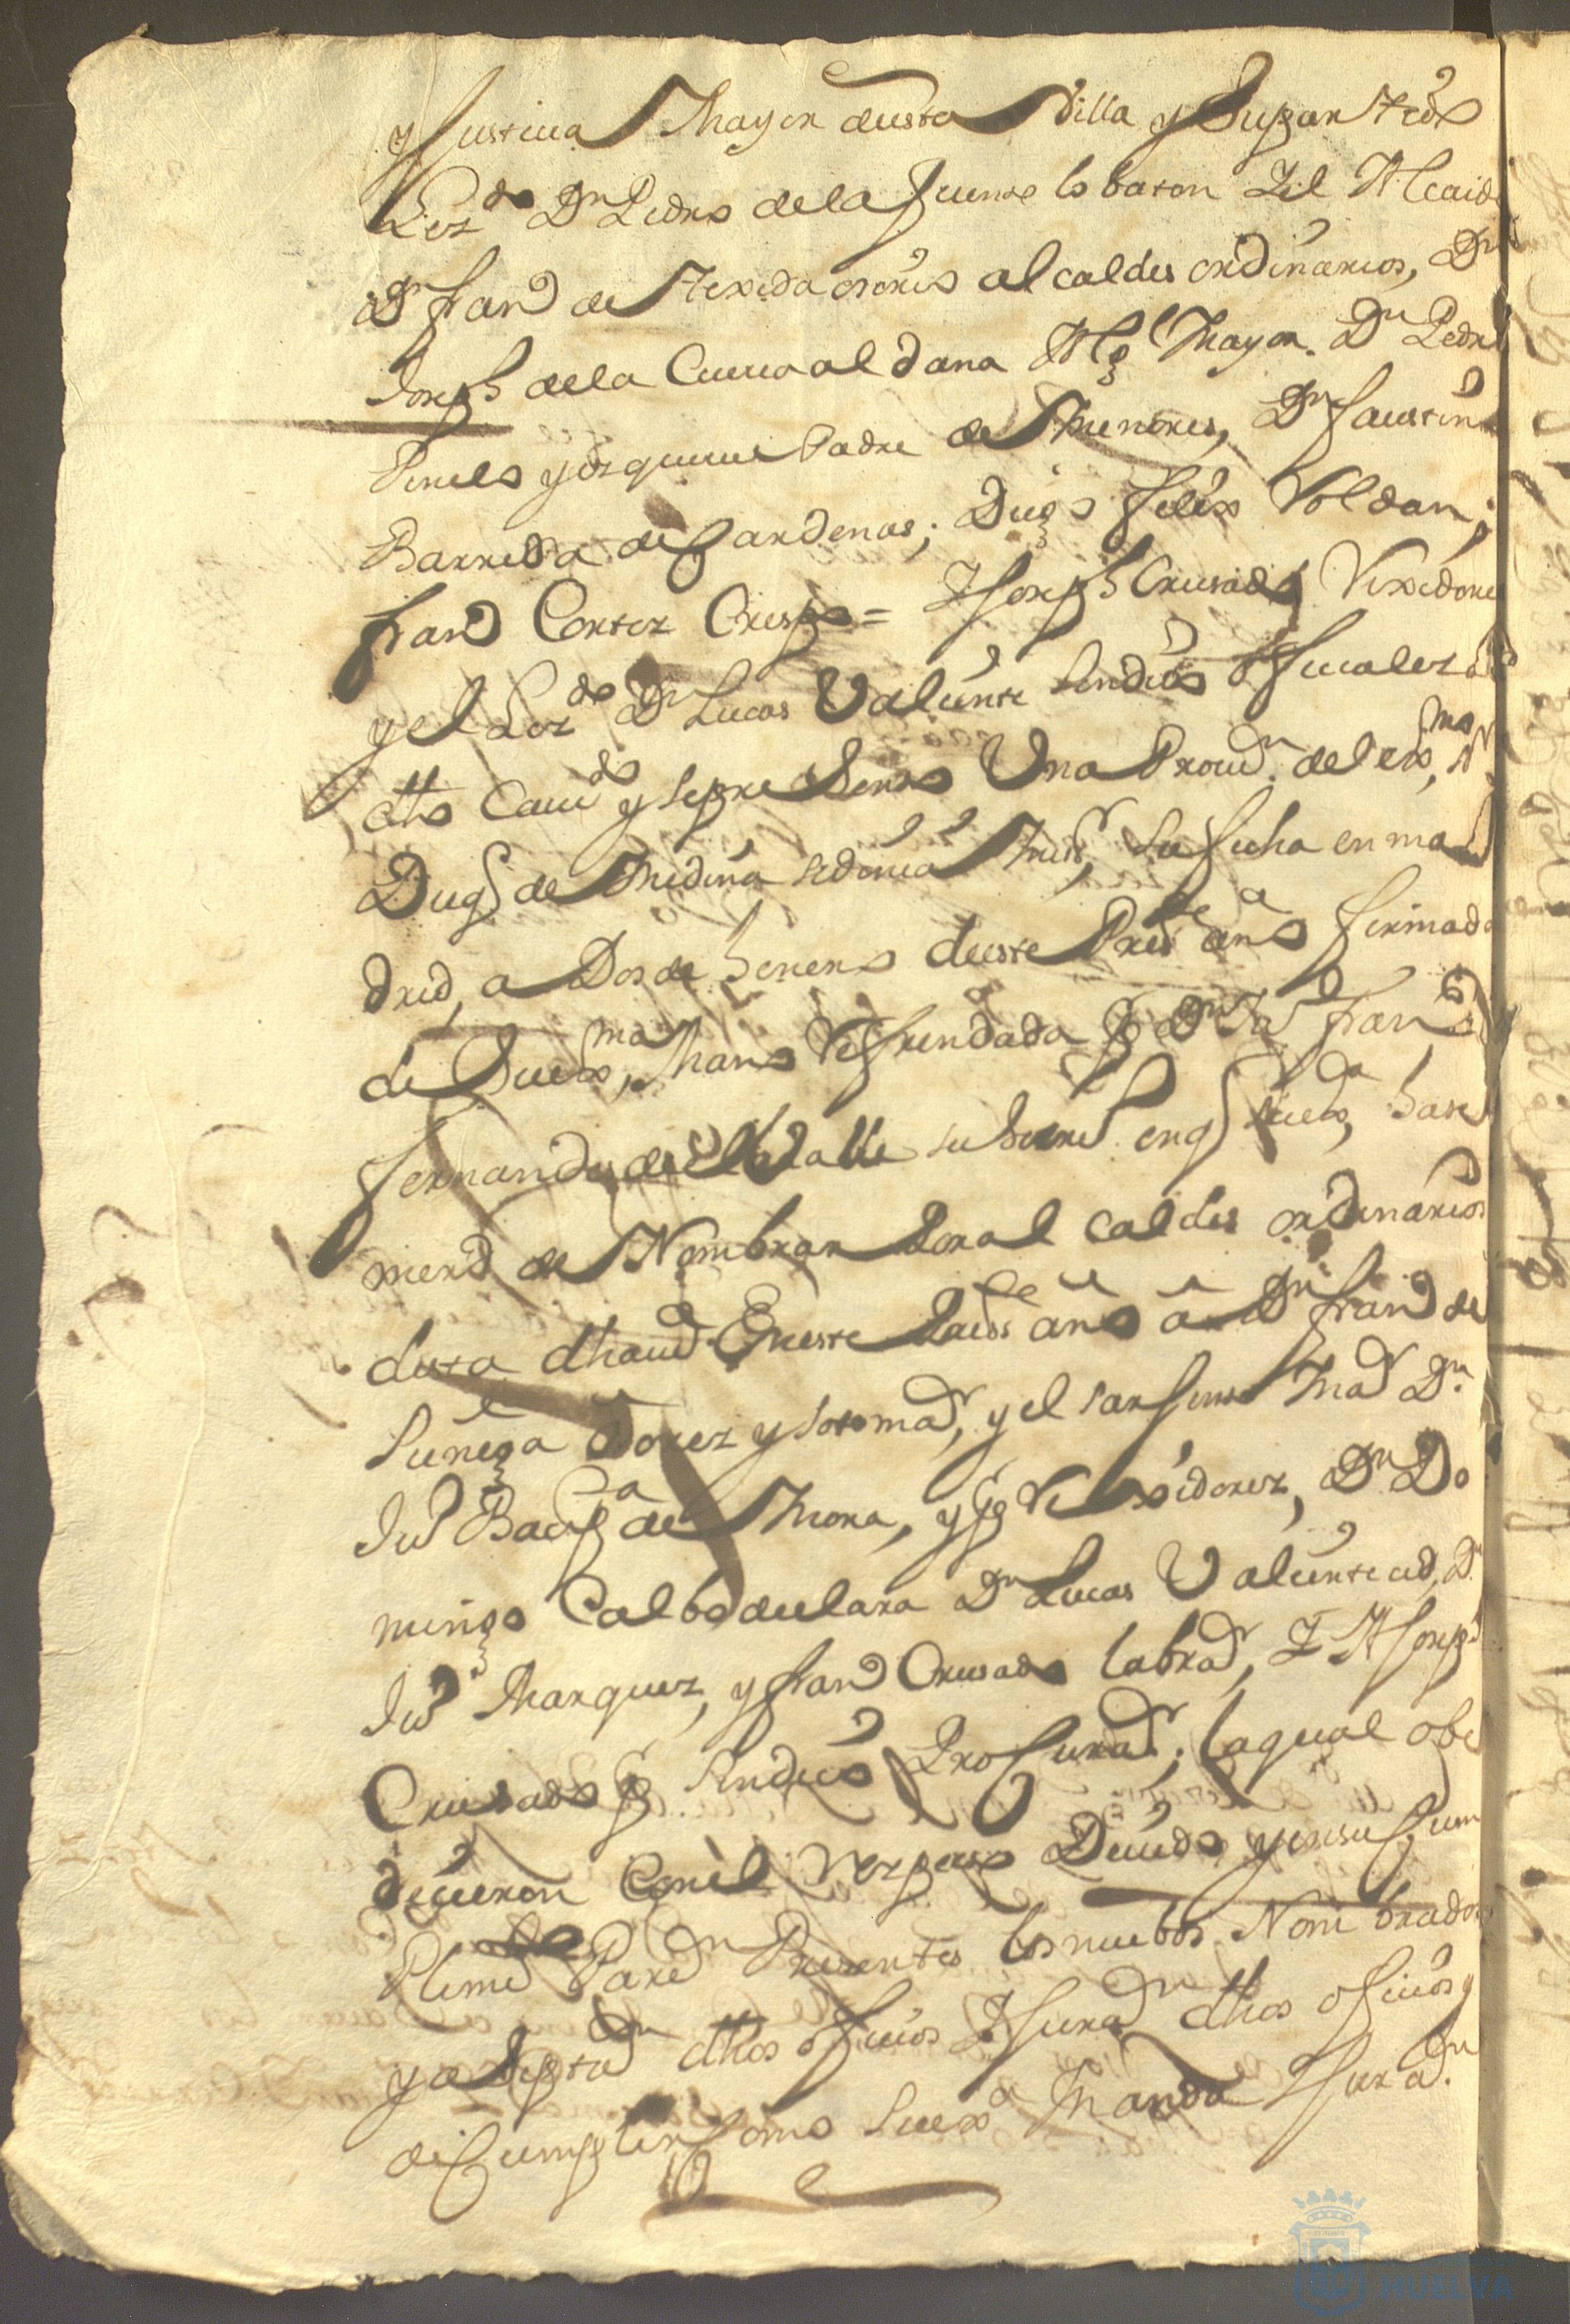 y Justicia Mayor desta Villa y Su partido
Lcz.do Dn Pedro de la fuente lobaton I el Alcaide
Dn Franco de texeda osorio alcaldes ordinarios, Dn
Joseph de la Cueva aldana Alg.l Mayor. Dn Pedro
Pinelo y Padre de Menores, Dn faustino
Barreda de Cardenas; Diego felix Roldan;
Franco Cortez Crespo = I Joseph Crusado Rexidores
y el Lcz.do Dn Lucas Valiente Sindico
dho Cavdo y se pre sento Una Provn. del exmo, Sr
Duq de Medina sidonia Mi sr, su fecha en ma
drid, a Dos de henero deeste Preste año firmada
de Su exma, Mano Refrendada por Dn Franco
fernandes del Valle su Secreto. en q Su exa, hase
merd de Nombrar Por al caldes ordinarios
desta dha vilª Eneste Preste año a Dn Franco de
Suñega Dorez y Sotomar, y el Mar Dn.
Jun Bauta de Mora, y por Rexidorez, Dn Do
mingo Calbo de Lara Dn Lucas Valiente cid, Dn
Jun Marquez, y Franco Crusado labrar, I A Joseph
Crusado por Sindico Procurar; la qual obe
decieron Con el Respecto Devido y en su Cum
plimto Paren Presentes los nuebos Nom brados
y asepten dhos ofisios I Juran dhos ofisios y
de Cumplir Como Su exa Manda I Juran.